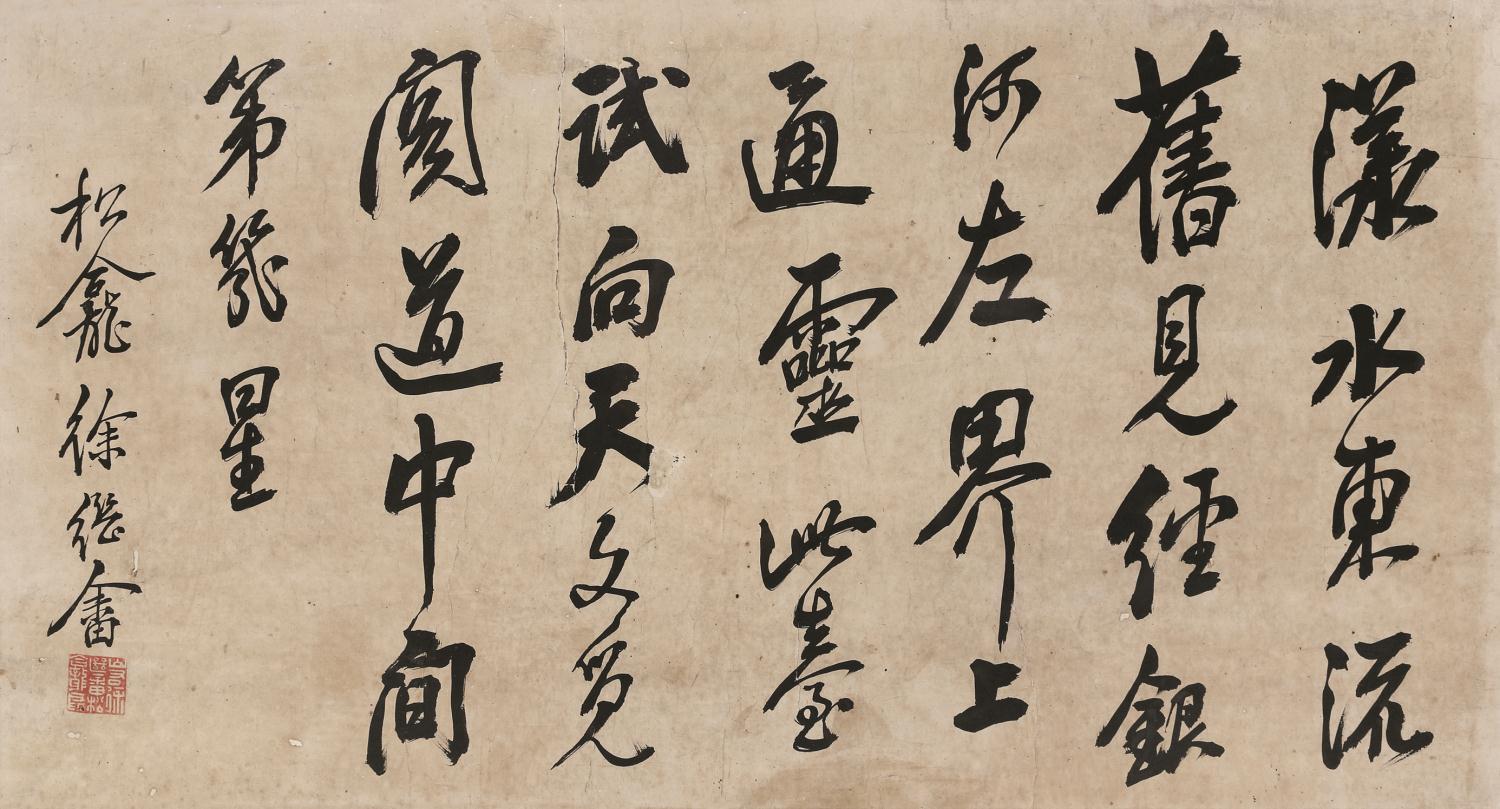 漢水東流
舊見經銀
河左界上
通靈此臺
試向天文覓
閣道中間
第幾星
松龕徐繼畬